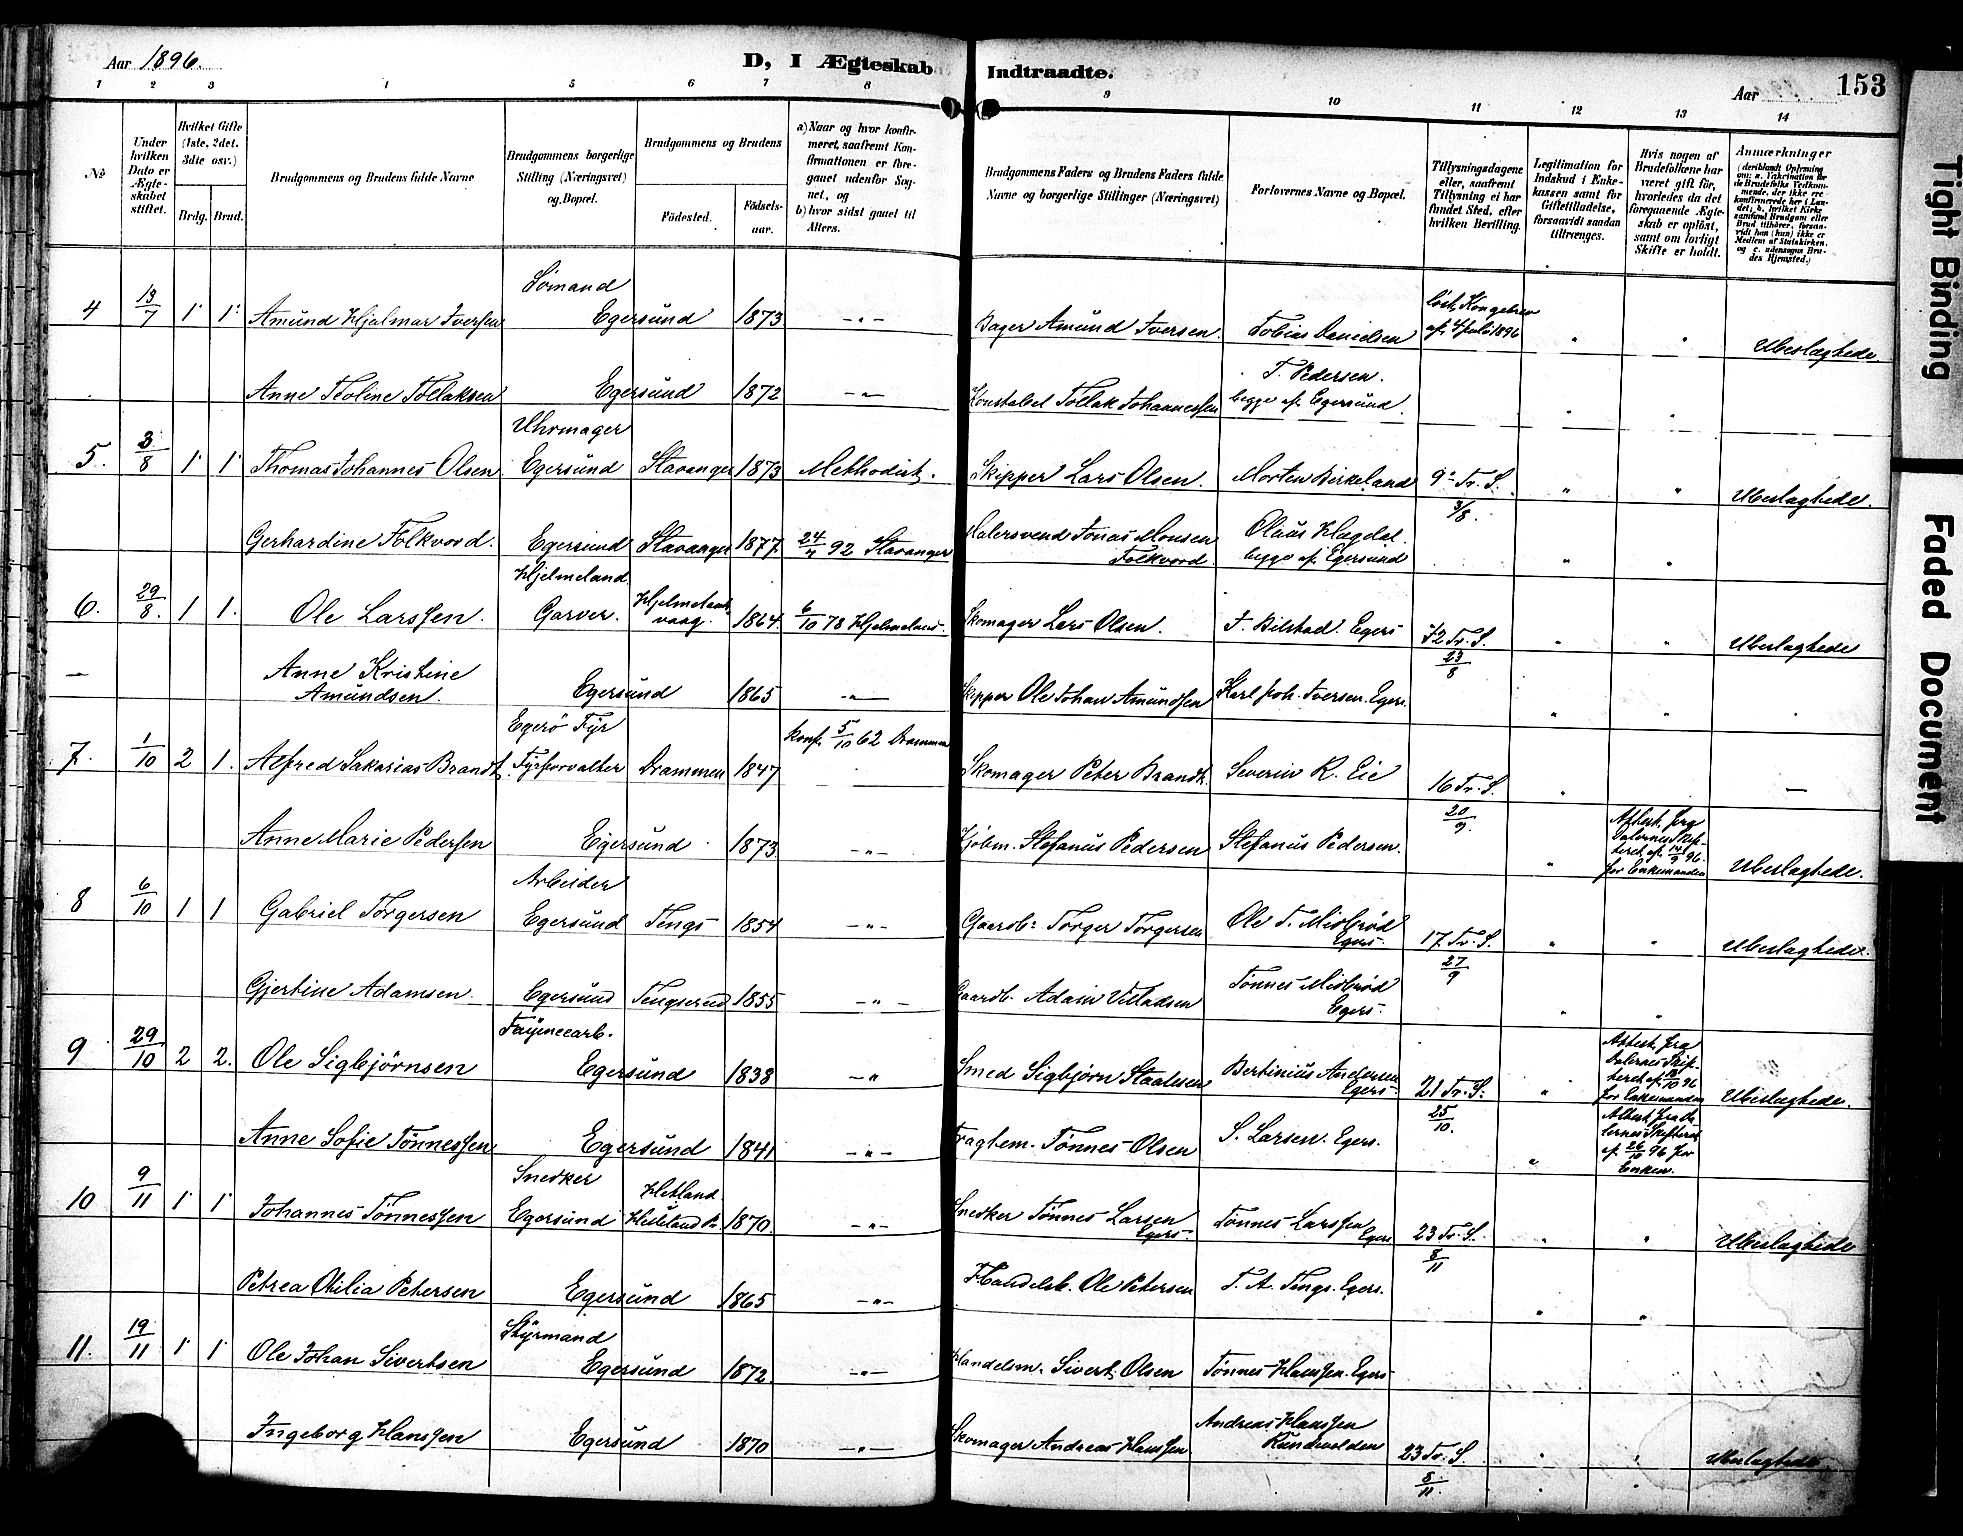 Aar 1896.
D, I Ægteskab Indtraadte.
Aar
153
1 2 3 4 5 6 7 8 9 10 11 12 13 14
No
Under hvilken Dato er Ægteskabet stiftet.
Hvilket Gifte (1ste, 2det, 3die osv.)
Brdg. Brud.
Brudgommens og Brudens fulde Navne
Brudgommens borgerlige Stilling (Næringsvei) og Bopæl.
Brudgommens og Brudens
Fødested.
Fødselsaar.
a) Naar og hvor konfirmeret, saafremt Konfirmationen er foregaaet udenfor Sognet, og
b) hvor sidst gaaet til Alters.
Brudgommens Faders og Brudens Faders fulde Navne og borgerlige Stillinger (Næringsvei)
Forlovernes Navne og Bopæl.
Tillysningsdagene eller, saafremt Tillysning ei har fundet Sted, efter hvilken Bevilling.
Legitimation for Indskud i Enkekassen samt for Giftetilladelse, forsaavidt saadan tiltrænges.
Hvis nogen af Brudefolkene har været gift før, hvorledes da det foregaaende Ægteskab er opløst, samt om lovligt Skifte er holdt.
Anmærkninger
(deriblandt Oplysning om: a. Vakcination for de Brudefolks Vedkommende, der ikke ere konfirmerede her i Landet; b. hvilket Kirkesamfund Brudgom eller Brud tilhører, forsaavidt han (hun) ikke er Medlem af Statskirken, og c. udensogns Brudes Hjemsted.)
4 13/7 1 1 Amund Hjalmar Iversen Sømand Egersund 1873 —"— Bager Amund Iversen. Tobias Danielsen Kongebrev af 4 Juli 1896 " " Ubeslægtede
Anne Teoline Tollaksen Egersund 1872 —"— Konstabel Tollak Johannessen T. Pedersen. begge af Egersund. " "
5. 3/8 1 1 Thomas Johannes Olsen Uhrmager Egersund Stavanger 1873 Methodist. Skipper Lars Olsen. Morten Birkeland 9 Tr. S. 3/8. " " Ubeslægtede.
Gerhardine Folkvord. Egersund Stavanger 1877. 24/4 92 Stavanger Malersvend Jonas Monsen Folkvord. Olaus Hægdal. begge af Egersund " "
6. 29/8. 1 1. Ole Larssen. Hjelmeland Garver. Hjelmelandsvaag. 1864. 6/10 78 Hjelmeland. Skomager Lars Olsen. J. Bilstad. Egers 12 Tr. S. 23/8 " " Ubeslægtede
— Anne Kristine Amundsen. Egersund 1865 —"— Skipper Ole Johan Amundsen Karl Joh. Iversen. Egers. " "
7. 1/10 2 1. Alfred Sakarias Brandt Egerø Fyr Fyrforvalter Drammen 1847 konf. 5/10 62 Drammen Skomager Peter Brandt. Severin R. Eie 16 Tr. S. 20/9. " —
Anne Marie Pedersen Egersund 1873. —"— Kjøbm. Stefanus Pedersen Stefanus Pedersen. " Attest fra Dalernes Skifteret af 14/9 96. for Enkemanden Ubeslægtede.
8 6/10 1 1 Gabriel Torgersen Arbeider Egersund Tengs 1854 —"— Gaardb: Torger Torgersen Ole T. Midbrød Egers. 17 Tr. S. 27/9 " " Ubeslægtede.
Gjertine Adamsen. Egersund Tengsereid 1855 —"— Gaardb. Adam Villadsen Tønnes Midbrød Egers. " "
9 29/10 2 2. Ole Sigbjørnsen Fayencearb. Egersund 1838 —" Smed Sigbjørn Staalesen Bertinius Andersen Egers. 21 Tr. S. 25/10. " Attest fra Dalernes Skifteret af 10 96 for Enkemanden Ubeslægtede.
Anne Sofie Tønnessen Egersund 1841 —"— Fragtem. Tønnes Olsen S. Larsen. Egers. " Attest fra Dalernes Skifteret af 26/10 96 for Enken.
10 9/11 1 1 Johannes Tønnessen Snedker Egersund Hetland 1870. —"— Snedker Tønnes Larsen Egers. Tønnes Larssen Egers 23 Tr. S. 8/11 " " Ubeslægtede
Petrea Otilia Petersen Egersund 1865 —"— Handelsb. Ole Petersen T. A. Tengs. Egers. " "
11. 19/11 1 1 Ole Johan Sivertsen Styrmand Egersund 1872. —"— Handelsm. Sivert Olsen Tønnes Hanssen. Egers
Ingeborg Hanssen Egersund 1870 —"— Skomager Andreas Hanssen Andreas Hanssen 23 Tr. S. 8/11. " " Ubeslægtede
Tight Binding
Faded Document